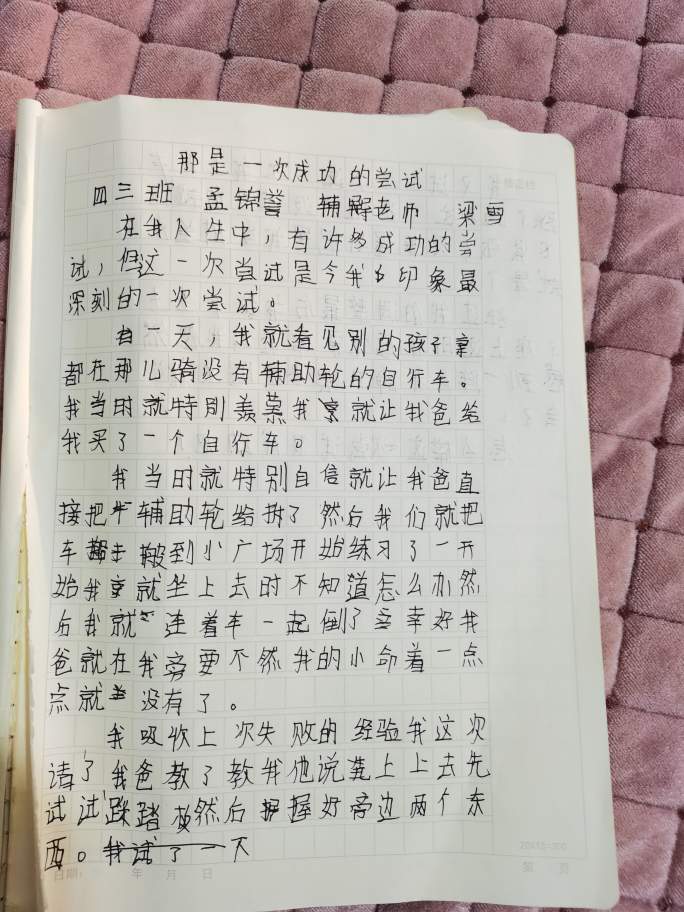 那是一次成功的尝试
四三班 孟锦 辅解老师 梁雪
在我人生中，有许多成功的尝
试，但这一次尝试是今我印象最
深刻的一次尝试。
有一天，我就看见别的孩子
都在那儿骑没有辅助轮的自行车。
我当时就特别羡慕我就让我爸给
我买了一个自行车。
我当时就特别自信就让我爸直
接把辅助轮给拆了然后我们就把
车搬到小广场开始练习了一开
始我就坐上去时不知道怎么办然
后我就连着车一起倒了幸好我
爸就在我旁要不然我的小命着一点
点就没有了。
我吸收上次失败的经验我这次
请了我爸教了教我他说上上去先
试试踏然后把握好旁边两个东
西。我试了一下
20415=300
日期： 年 月 日 第 页